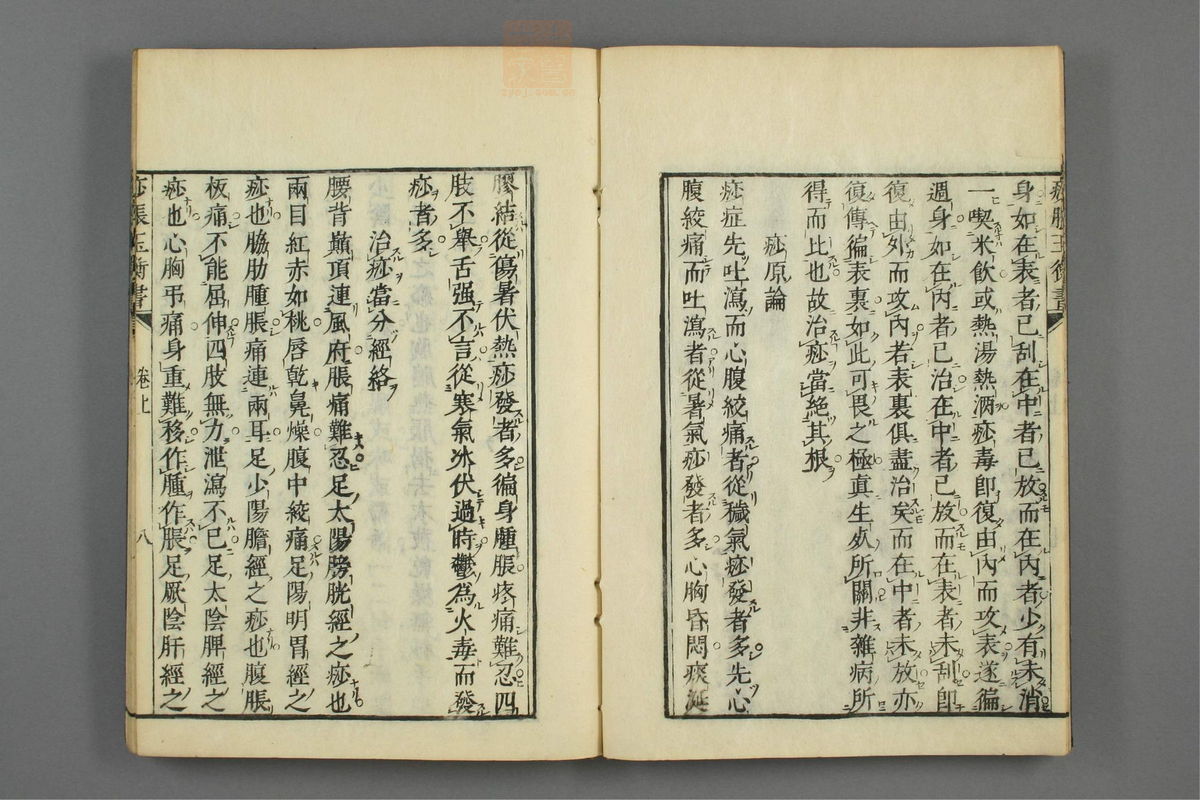 身如在表者已刮在中者已放而在内者少有未消
一喫米飲或熱湯熱酒痧毒即復由内而攻表遂徧
週身如在内者已治在中者已放而在表者未刮即
復由外而攻内若表裏俱盡治矣而在中者未放亦
復傳徧表裏如此可畏之極真生死所關非雜病所
得而比也故治痧當絕其根
痧原論
痧症先吐瀉而心腹絞痛者從穢氣痧發者多先心
腹絞痛而吐瀉者從暑氣痧發者多心胸昏悶痰涎
膠結從傷暑伏熱痧發者多徧身腫脹疼痛難忍四
肢不舉舌强不言從寒氣冰伏過時鬱爲火毒而發
痧者多
治痧當分經絡
腰背巔頂連風府脹痛難忍足太陽膀胱經之痧也
兩目紅赤如桃唇乾鼻燥腹中絞痛足陽明胃經之
痧也脇肋腫脹痛連兩耳足少陽膽經之痧也腹脹
板痛不能屈伸四肢無力泄瀉不已足太陰脾經之
痧也心胸弔痛身重難移作腫作脹足厥陰肝經之
痧脹玉衡書
卷上
八